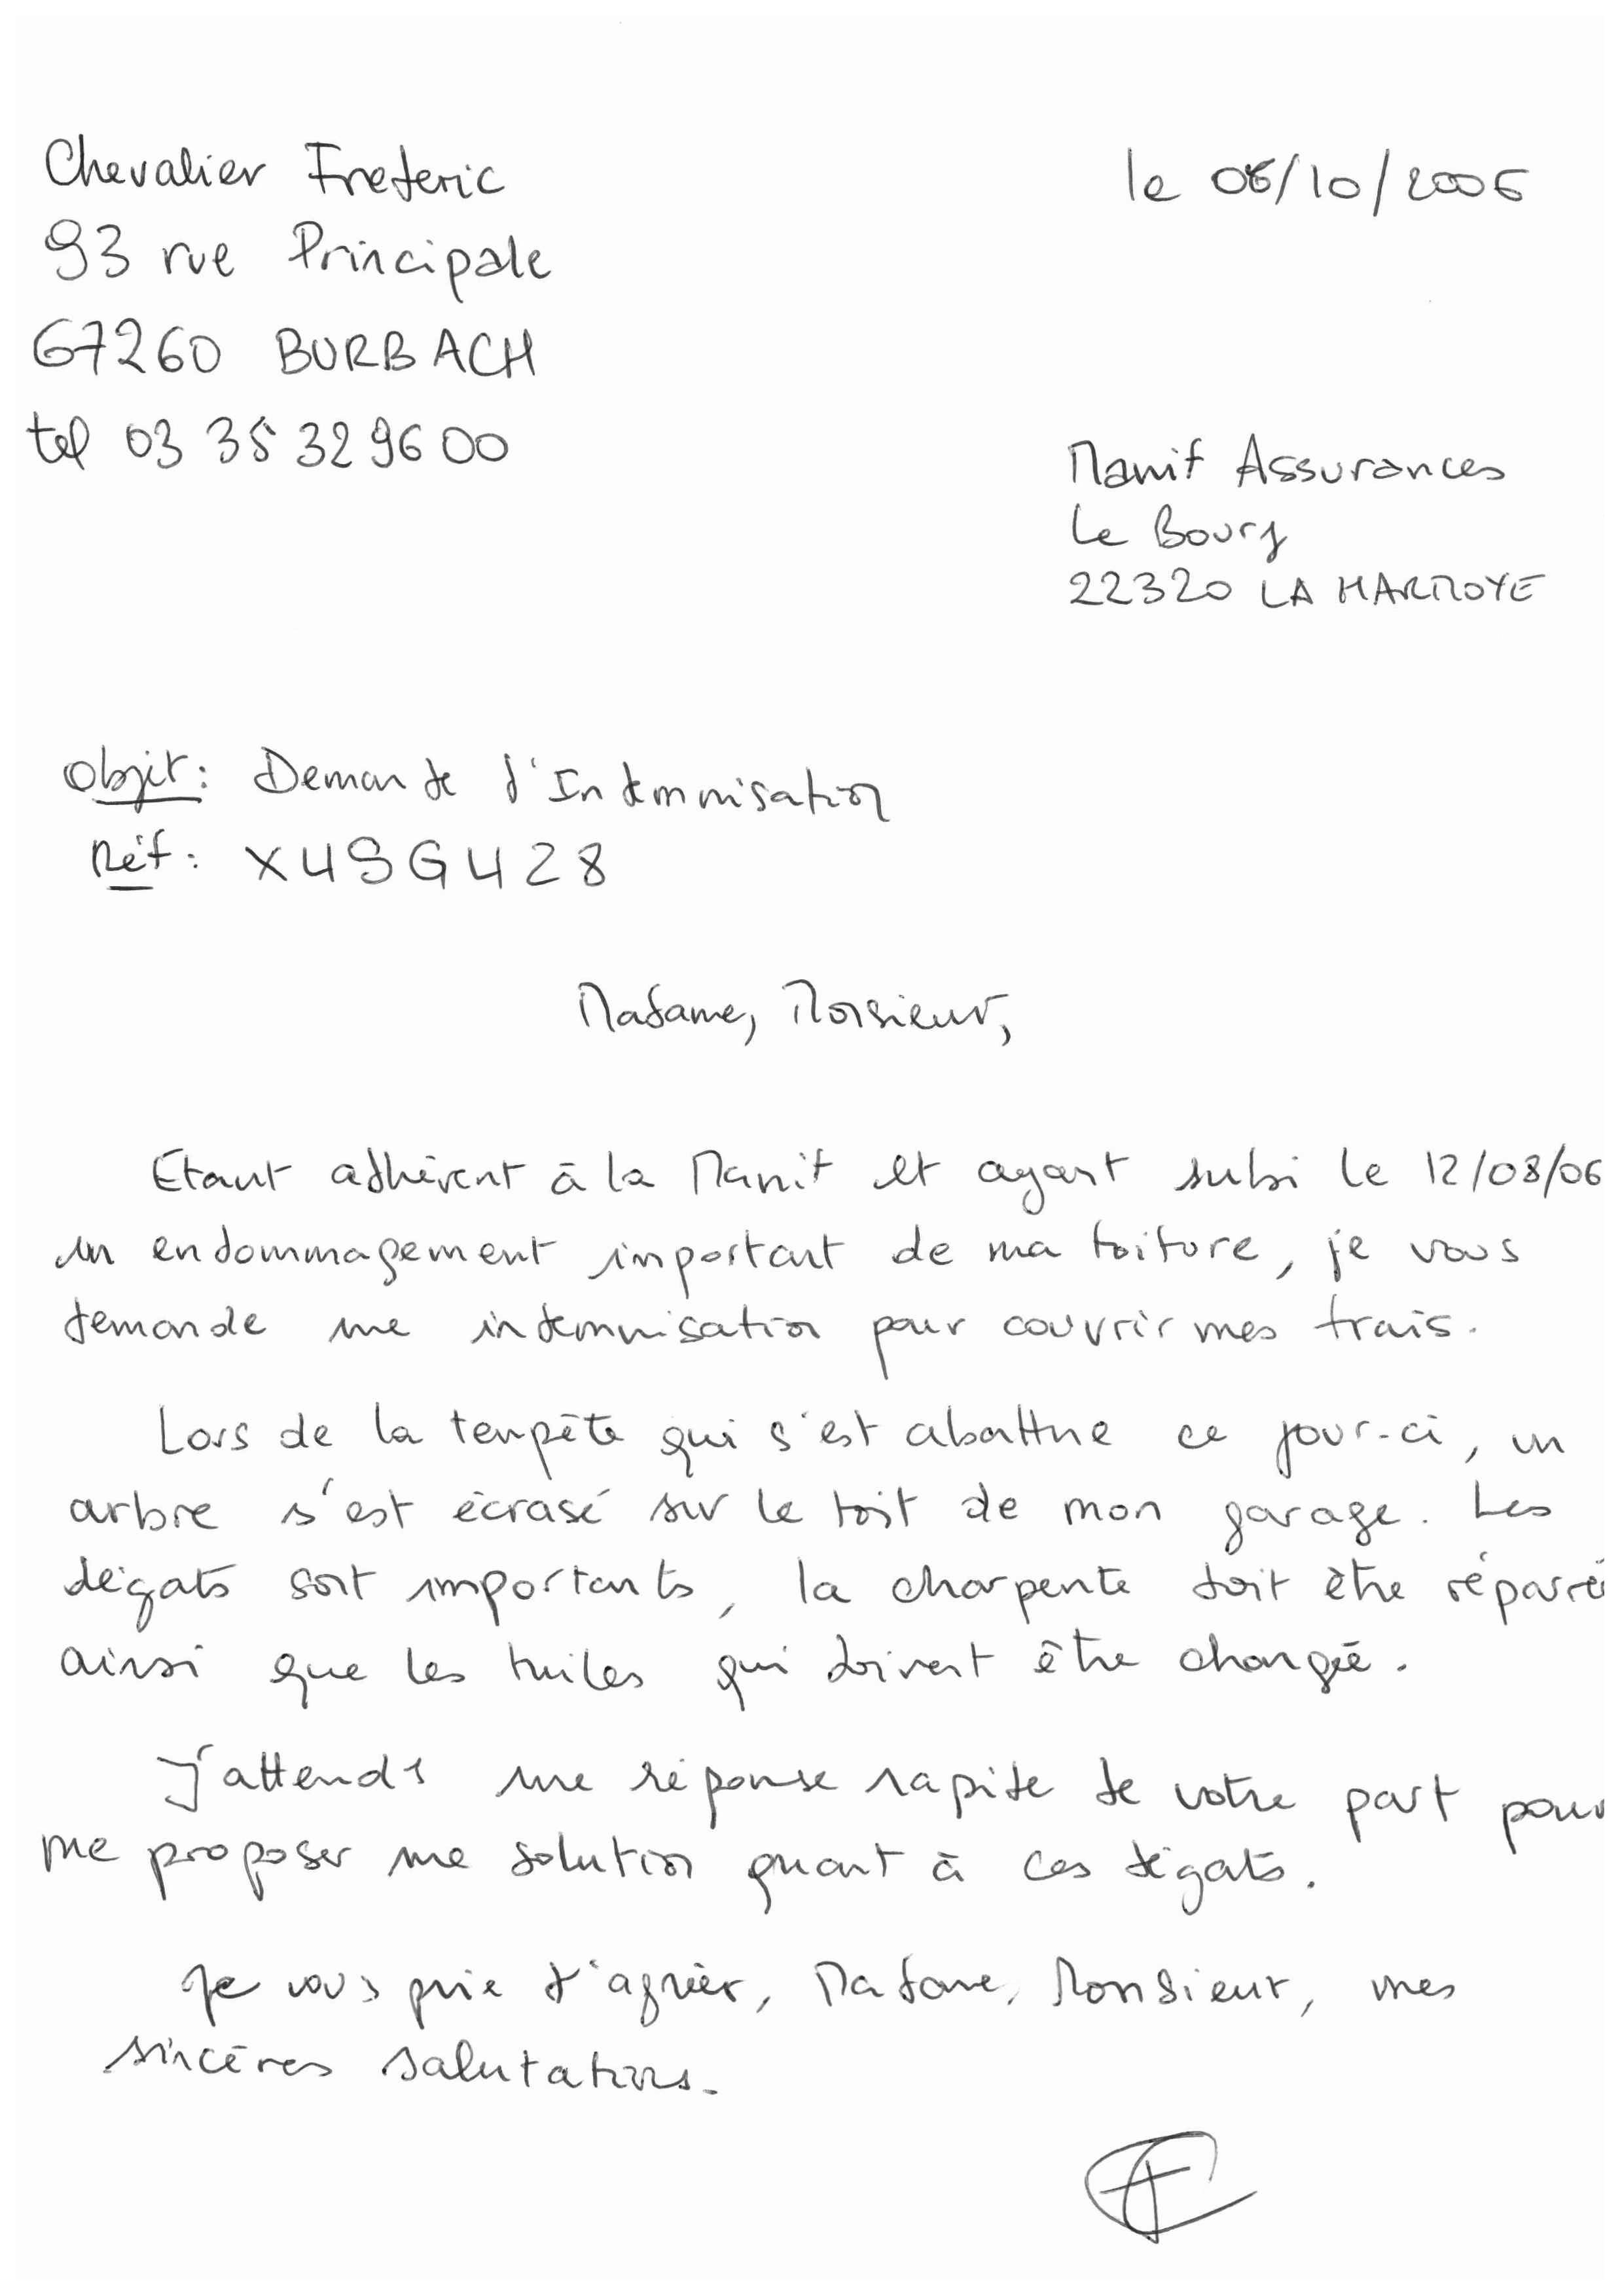 Chevalier Frederic
le 06/10/2006
93 rue Principale
67260 BURBACH
tel 03 35 32 96 00
Manif Assurances
Le Bourg
22320 LA HARMOYE
Objet : Demande d'Indemnisation
Réf : X4SG428
Madame, Monsieur,
Etant adhérent à la Manif et ayant subi le 12/08/06
un endommagement important de ma toiture, je vous
demande une indemnisation pour couvrir mes frais.
Lors de la tempête qui s'est abattue ce jour-ci, un
arbre s'est écrasé sur le toit de mon garage. Les
dégats sont importants, la charpente doit être réparré
ainsi que les tuiles qui doivent être changée.
J'attends une réponse rapide de votre part pour
me proposer une solution quant à ces dégats.
Je vous prie d'agréer, Madame, Monsieur, mes
sincères salutations.